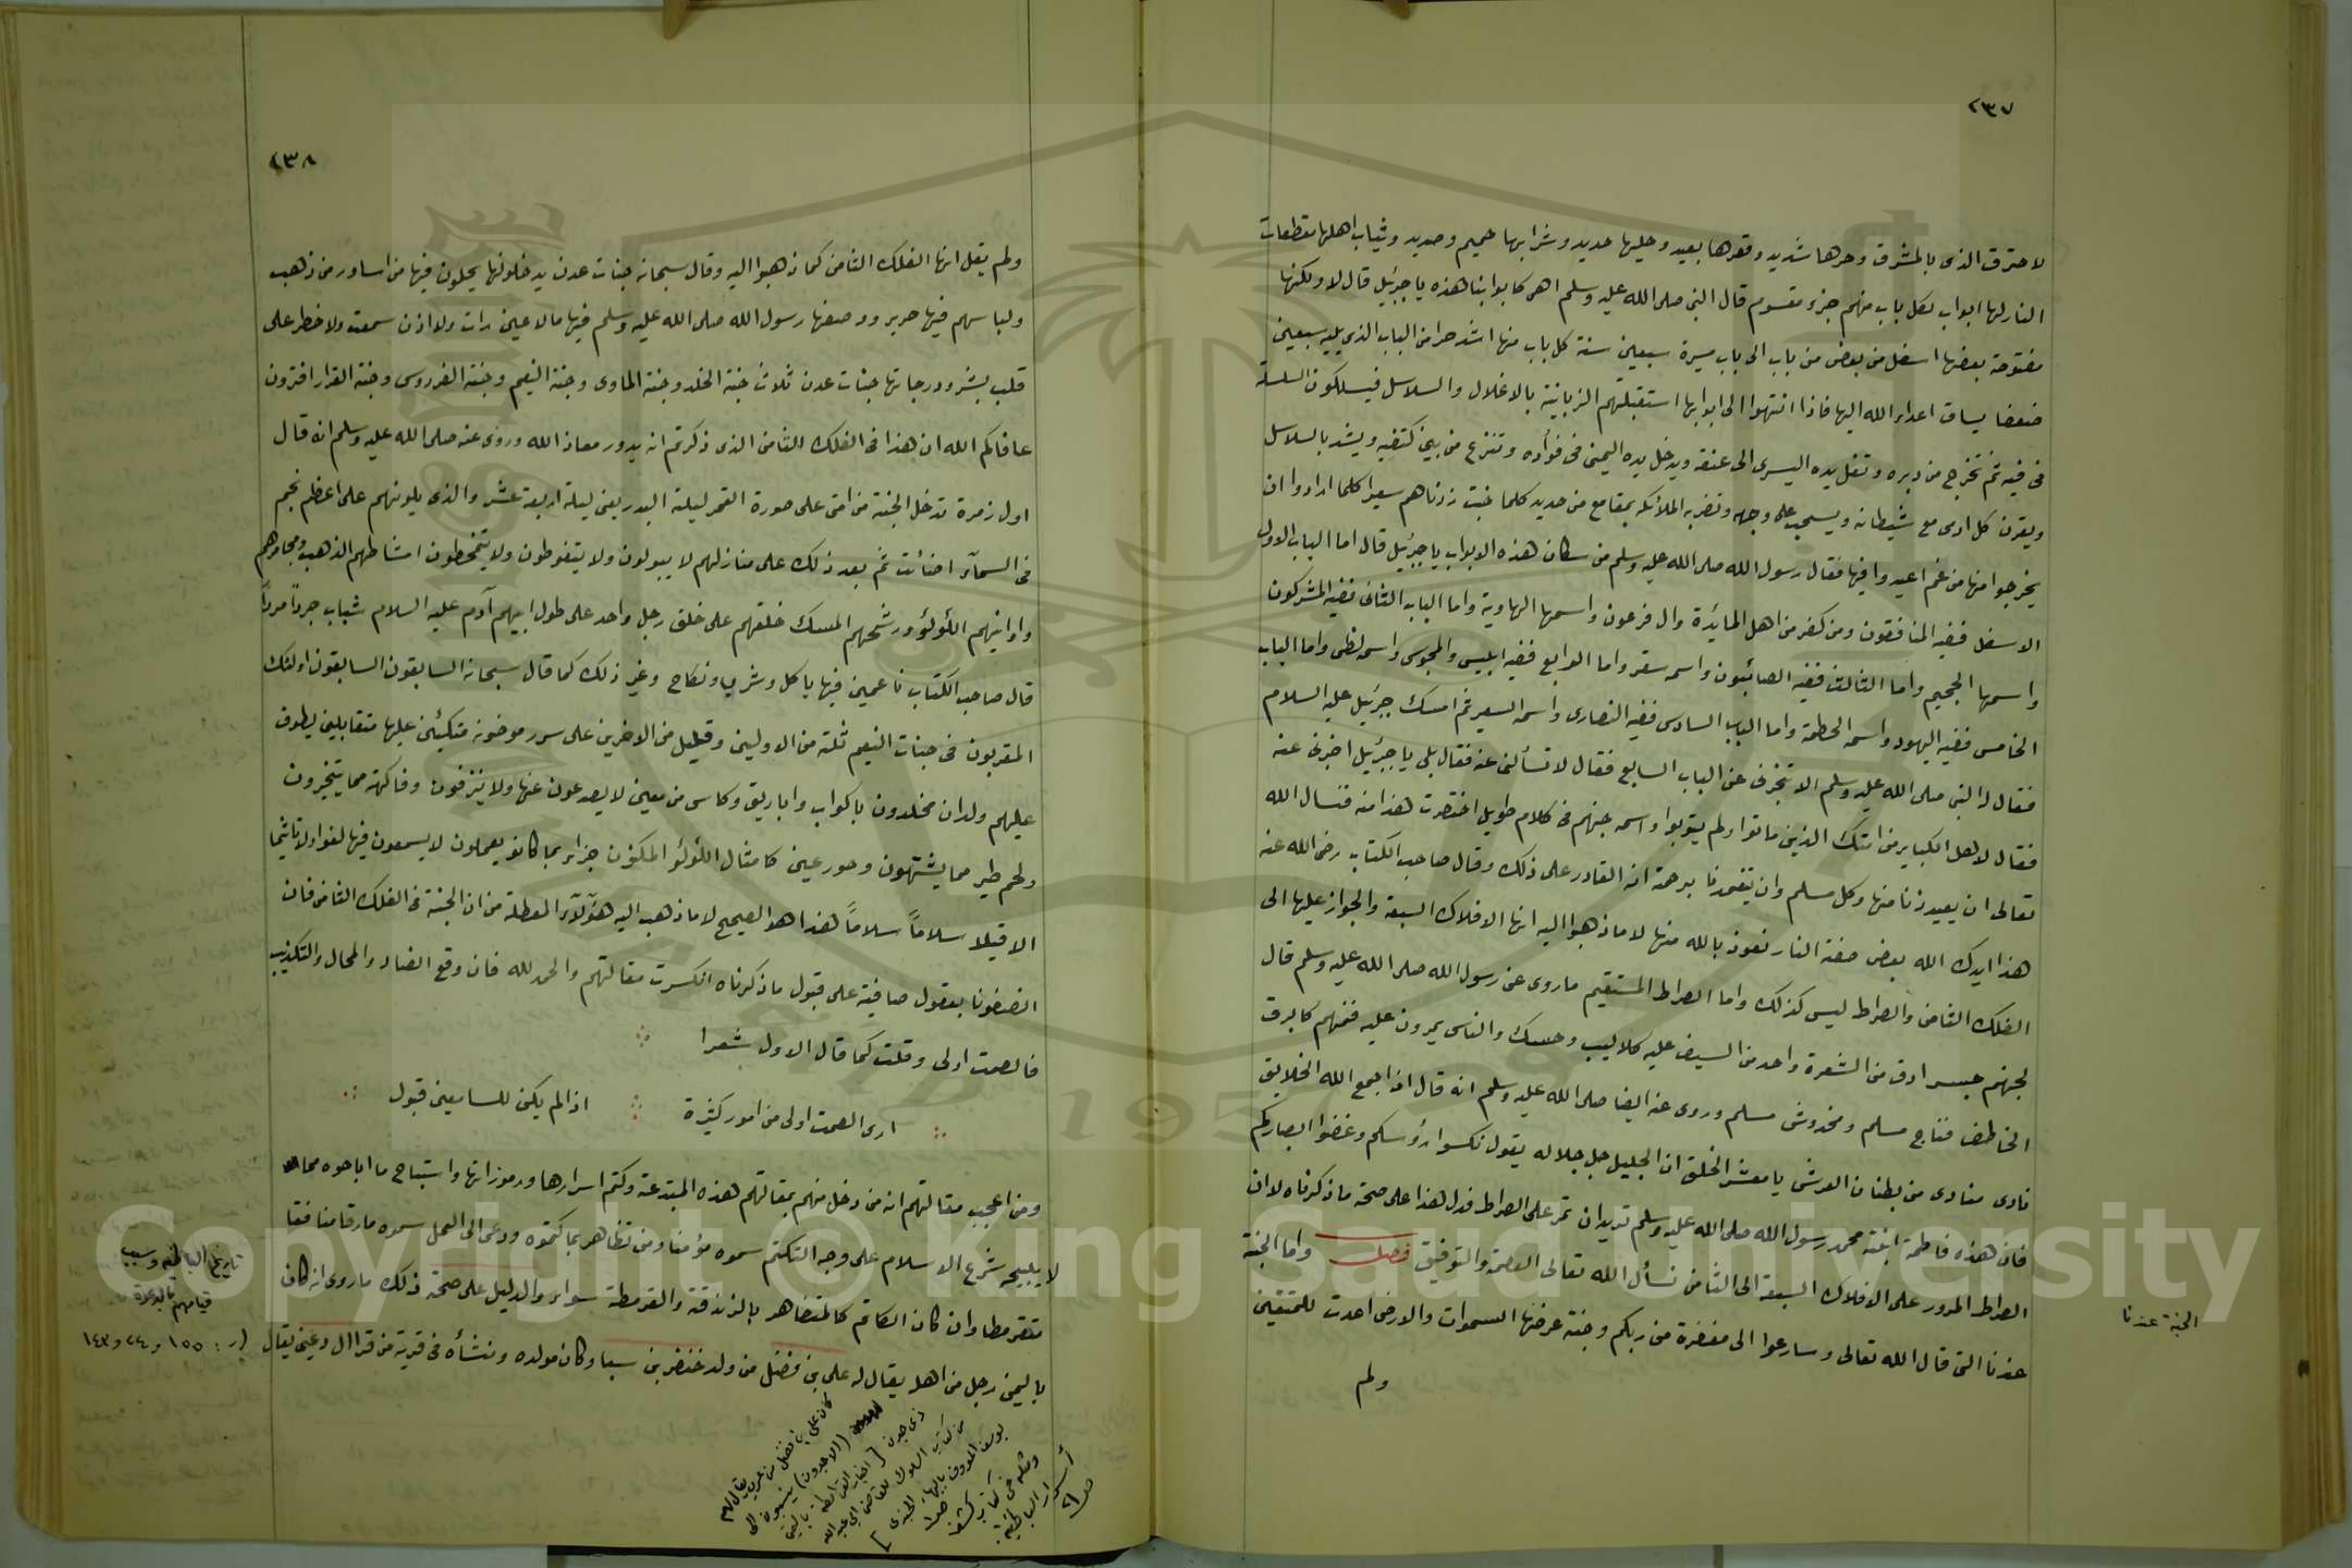 ٢٣٧
لاحترق الذى بالمشرق وحرها شديد وقعرها بعيد وحليها حديد وشرابها حميم وصديد وثياب اهلها مقطعات
النار لها ابواب لكل باب منهم جزء مقسوم قال النبى صلى الله عليه وسلم اهى كابوابنا هذه يا جبرئيل قال لا ولكنها
مفتوحة بعضها اسفل من بعض من باب الى باب مسيرة سبعين سنة كل باب منها اشد حرا من الباب الذى يليه سبعين
ضعفا يساق اعداء الله اليها فاذا انتهوا الى ابوابها استقبلتهم الزبانية بالاغلال والسلاسل فيسلكون السلسلة
فى فيه ثم تخرج من دبره وتغل يده اليسرى الى عنقه ويدخل يده اليمنى فى فؤاده وتنزع من بين كتفيه ويشد بالسلاسل
ويقرن كل ادمى مع شيطانه ويسحب على وجهه وتضربه الملائكه بمقامع من حديد كلما خبت زدناهم سعيرا كلما ارادوا ان
يخرجوا منها من غم اعيدوا فيها فقال رسول الله صلى الله عليه وسلم من سكان هذه الابواب يا جبرئيل قال اما الباب الاول
الاسفل ففيه المنافقون ومن كفر من اهل المائدة وال فرعون واسمها الهاوية واما الباب الثانى ففيه المشركون
واسمها الجحيم واما الثالث ففيه الصابئيون واسمه سقر واما الرابع ففيه ابليس والمجوس واسمه لظى واما الباب
الخامس ففيه اليهود واسمه الحطمة واما الباب السادس ففيه النصارى واسمه السعير ثم امسك جبرئيل عليه السلام
فقال له النبى صلى الله عليه وسلم الا تخبرنى عن الباب السابع فقال لا تسألنى عنه فقال بلى يا جبرئيل اخبرنى عنه
فقال لاهل الكباير من امتك الذين ماتوا ولم يتوبوا واسمه جهنم فى كلام طويل اختصرت هذا منه فنسال الله
تعالى ان يعيذنا منها وكل مسلم وان يتغمدنا برحمته انه القادر على ذلك وقال صاحب الكتاب رضى الله عنه
هذا ايدك الله بعض صفة النار نعوذ بالله منها لا ما ذهبوا اليه انها الافلاك السبعة والجواز عليها الى
الفلك الثامن والصراط ليس كذلك واما الصراط المستقيم ماروى عن رسول الله صلى الله عليه وسلم قال
لجهنم جسر ادق من الشعرة واحد من السيف عليه كلاليب وحسك والناس يمرون عليه فمنهم كالبرق
الخاطف فناج مسلم ومخدوش مسلم وروى عنه ايضا صلى الله عليه وسلم انه قال اذا جمع الله الخلايق
نادى منادى من بطنان العرش يا معشر الخلق ان الجليل جل جلاله يقول نكسوا رؤسكم وغضوا ابصاركم
فان هذه فاطمة ابنة محمد رسول الله صلى الله عليه وسلم تريد ان تمر على الصراط فدل هذا على صحة ما ذكرناه لا ان
الصراط المرور على الافلاك السبعة الى الثامن نسأل الله تعالى العصمة والتوفيق فصل واما الجنة
عندنا التى قال الله تعالى وسارعوا الى مغفرة من ربكم وجنة عرضها السموات والارض اعدت للمتقين
ولم
الجنة عندنا
٢٣٨
ولم يقل انها الفلك الثامن كما ذهبوا اليه وقال سبحانه جنات عدن يدخلونها يحلون فيها من اساور من ذهب
ولباسهم فيها حرير ووصفها رسول الله صلى الله عليه وسلم فيها مالا عين رات ولا اذن سمعت ولا خطر على
قلب بشر ودرجاتها جنات عدن ثلاث جنة الخلد وجنة الماوى وجنة النعيم وجنة الفردوس وجنة القرار افترون
عافاكم الله ان هذا فى الفلك الثامن الذى ذكرتم انه يدور معاذ الله وروى عنه صلى الله عليه وسلم انه قال
اول زمرة تدخل الجنة من امتى على صورة القمر ليلة البدر يعنى ليلة اربعة عشر والذى يلونهم على اعظم نجم
فى السمآء اضائت ثم بعد ذلك على منازلهم لا يبولون ولا يتغوطون ولا يتمخطون امشاطهم الذهب ومجامرهم
وادانيهم اللؤلؤ ورشحهم المسك خلقهم على خلق رجل واحد على طول ابيهم آدم عليه السلام شباب جرداً مرداً
قال صاحب الكتاب ناعمين فيها باكل وشرب ونكاح وغير ذلك كما قال سبحانه السابقون السابقون اولئك
المقربون فى جنات النعيم ثلة من الاولين وقليل من الاخرين على سرر موضونه متكئين عليها متقابلين يطوف
عليهم ولدان مخلدون باكواب واباريق وكاس من معين لا يصدعون عنها ولا ينزفون وفاكهة مما يتخيرون
ولحم طير مما يشتهون وحور عين كامثال اللؤلؤ المكنون جزاء بما كانو يعملون لا يسمعون فيها لغوا ولا تاثيما
الا قيلا سلاماً سلاماً هذا هو الصحيح لا ما ذهب اليه هؤلآء المعطلة من ان الجنة فى الفلك الثامن فان
انصفونا بعقول صافية على قبول ما ذكرناه انكسرت مقالتهم والحمد لله فان وقع العناد والمحال والتكذيب
فالصمت اولى وقلت كما قال الاول شعرا
ارى الصمت اولى من امور كثيرة اذا لم يكن للسامعين قبول
ومن اعجب مقالتهم انه من دخل منهم بمقالتهم هذه المبتدعة وكتم اسرارها ورموزاتها واستباح ما اباحوه مما
لا يبيحه شرع الاسلام على وجه التكتم سموه مؤمنا ومن تظاهر بما كتموه ودعى الى العمل سموه مارقا منافقا
متقرمطا وان كان الكاتم كالمتظاهر بالزندقة والقرمطة سواء والدليل على صحة ذلك ماروى انه كان
باليمن رجل من اهله يقال له على بن فضل من ولد خنفر بن سبا وكان مولده ومنشأه فى قرية من قرا ال وعين يقال
تاريخ الباطنية وسبب
قيامهم بالدعوة
(ر: ١٥٥ و ٢٤ و ١٤٣
كان على بن فضل من عرب يقال لهم
(الاجدون) ينسبون الى
ذى جدن [اخبار القرامطة باليمن
من كتاب السلوك للقاضى ابى عبد الله
يوسف المعروف بالبهاء الجندى]
ومثله فى كتاب كشف
أسرار الباطنية
ص٢١
Copyright © King Saud University